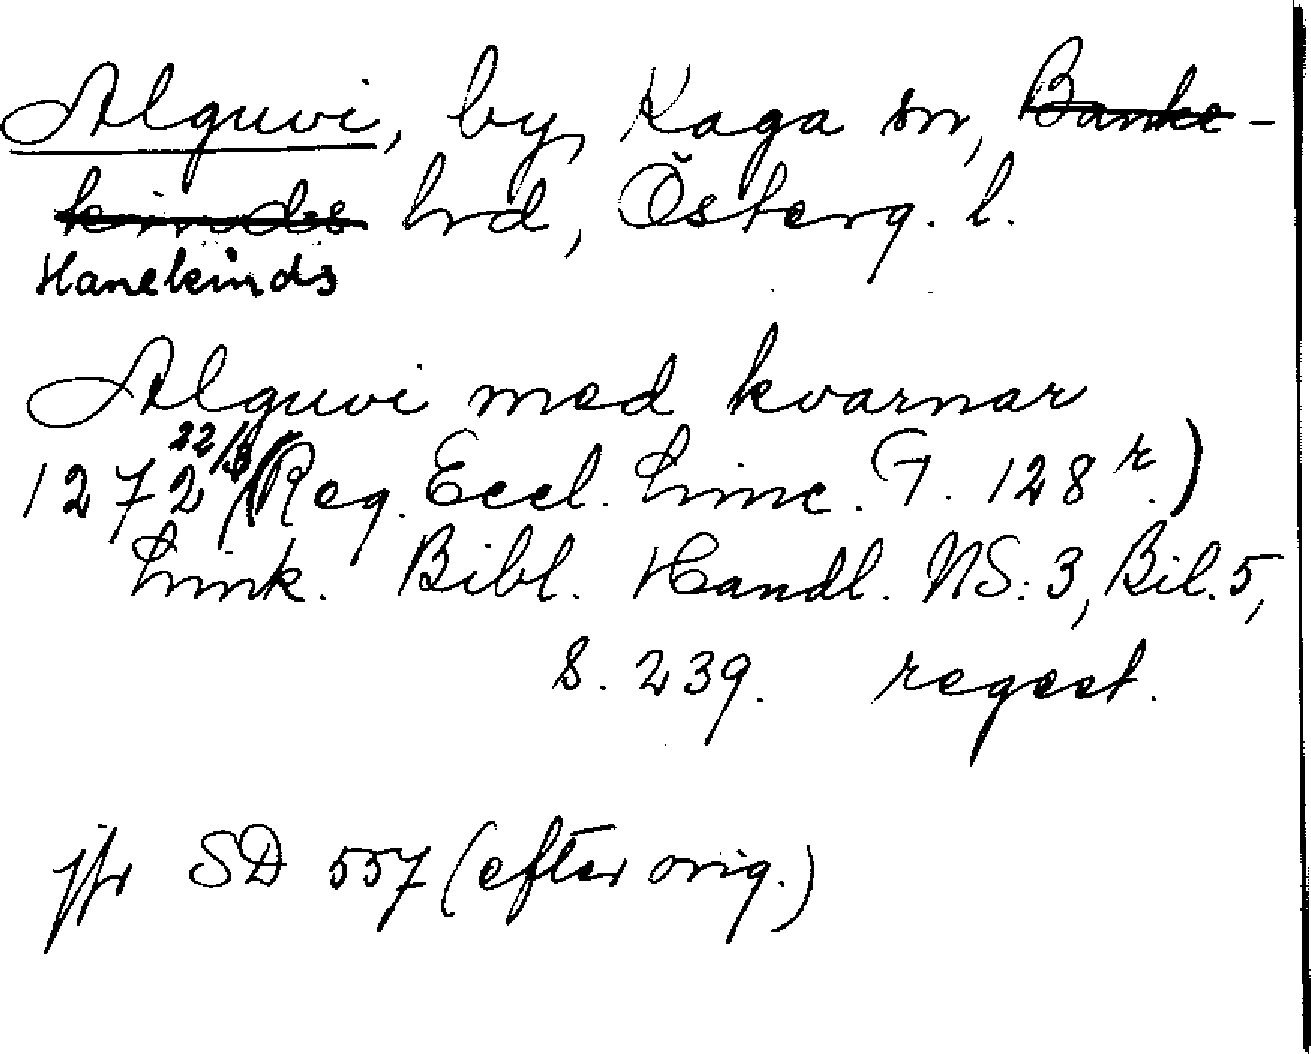 Alguvi, by, Kaga sn, Banke-
kinds hrd, Österg. l.
Hanekinds
Alguvi med kvarnar
1272 22/8 (Reg. Eccl. Linc. F. 128 r.)
Link. Bibl. Handl. NS: 3, Bil. 5,
S. 239. regest.
jfr SD 557 (efter orig.)